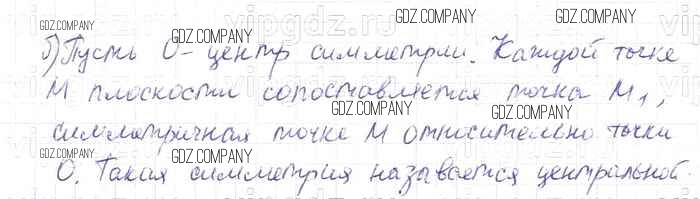 б) Пусть О - центр симметрии. Каждой точке
М плоскости сопоставляется точка М₁,
симметричная точке М относительно точки
О. Такая симметрия называется центральной.
GDZ.COMPANY
GDZ.COMPANY
GDZ.COMPANY
GDZ.COMPANY
GDZ.COMPANY
GDZ.COMPANY
GDZ.COMPANY
GDZ.COMPANY
GDZ.COMPANY